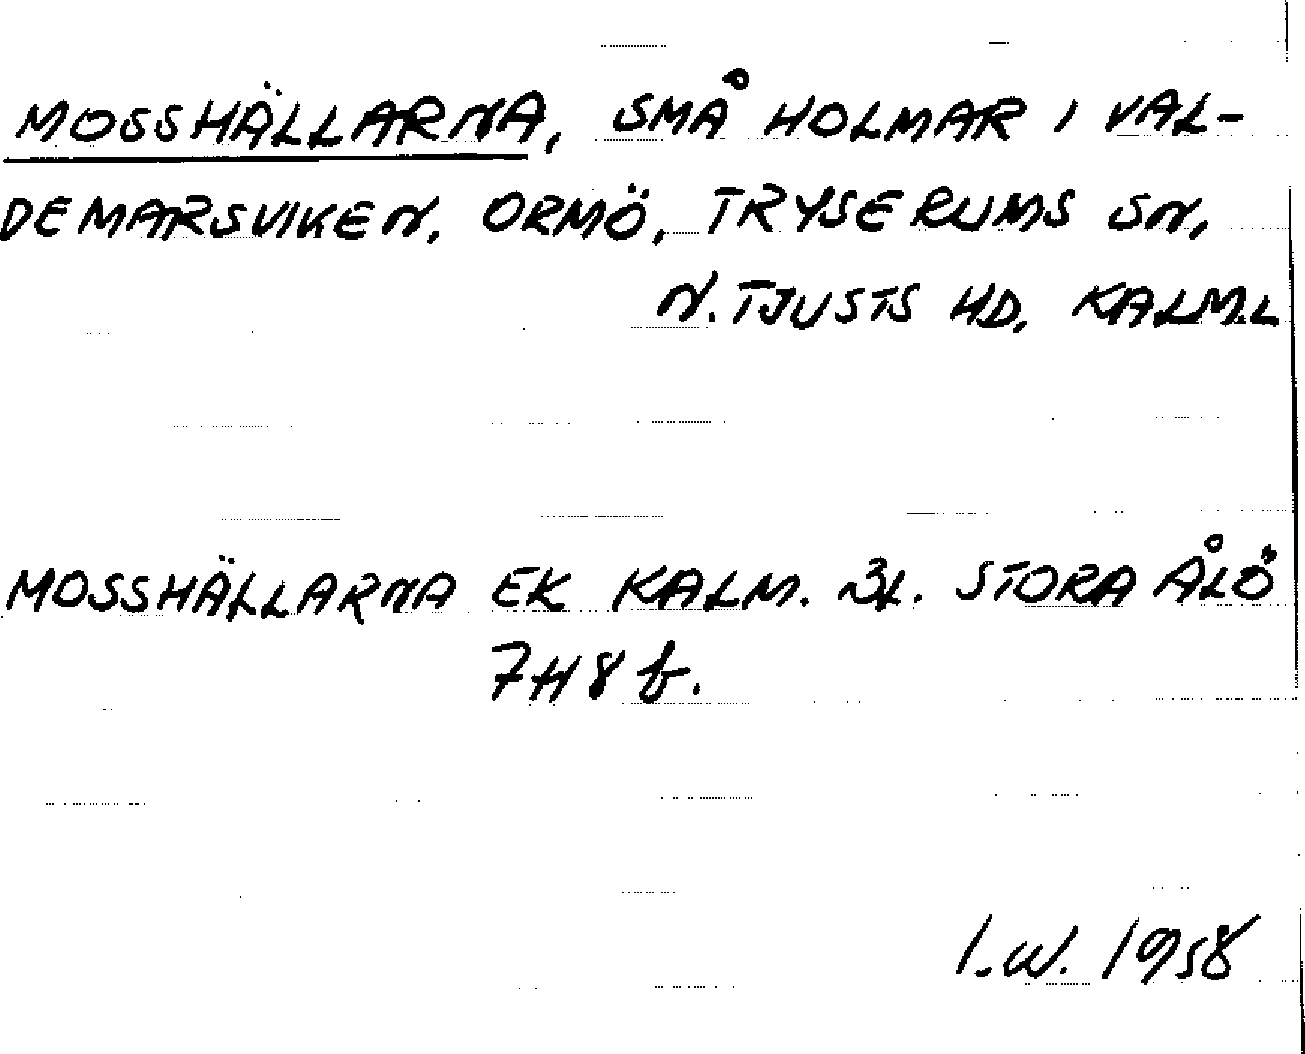 MOSSHÄLLARNA, SMÅ HOLMAR I VAL-
DEMARSVIKEN, ORMÖ, TRYSERUMS SN,
N. TJUSTS HD, KALM.L
MOSSHÄLLARNA EK KALM. BL. STORA ÅLÖ
7H8f.
I.W. 1958